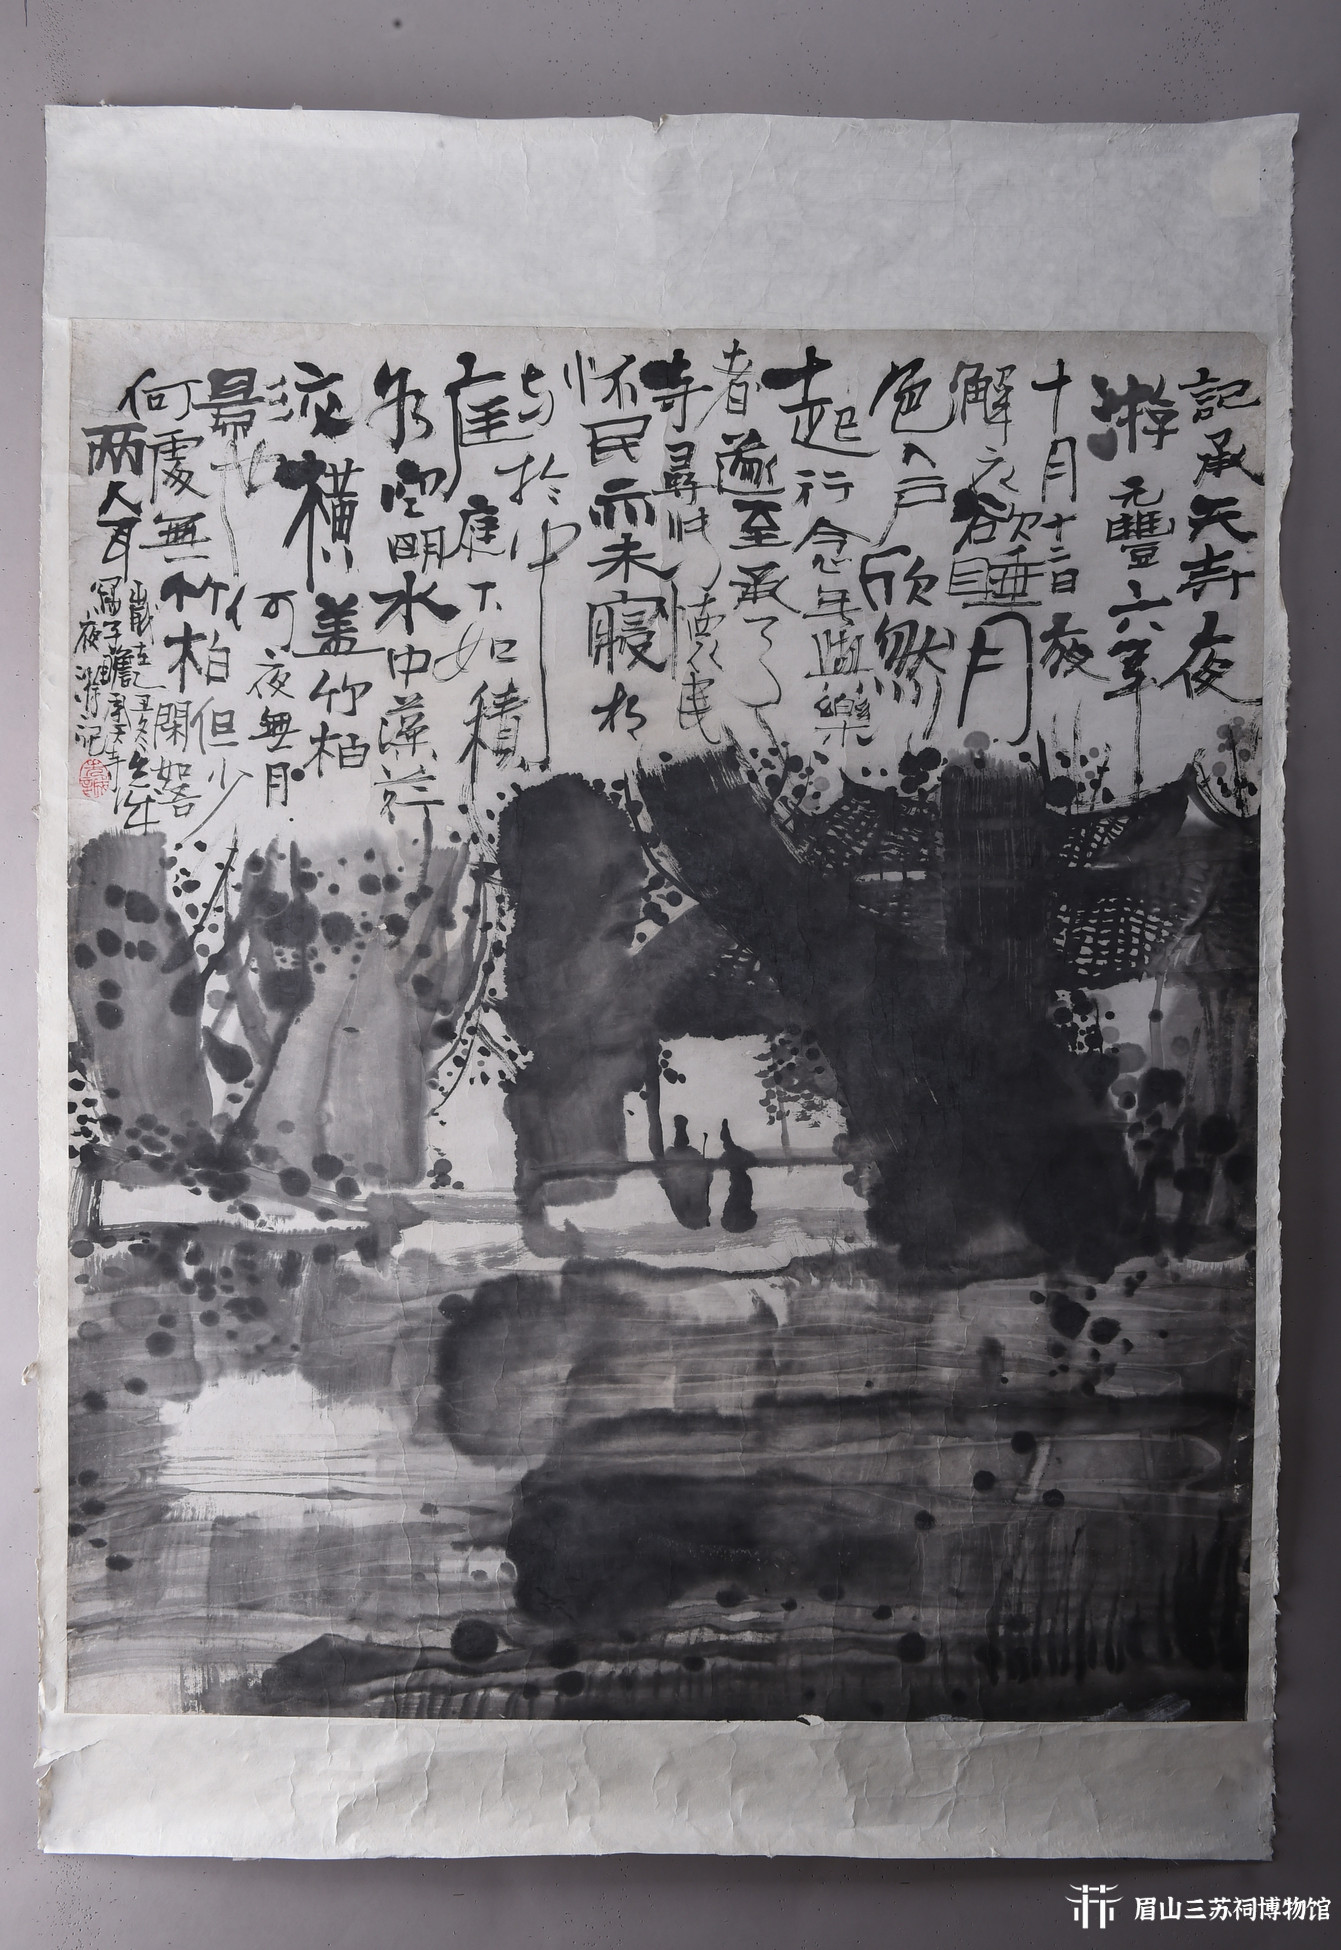 記承天寺夜
游元豐六年
十月十二日夜
解衣欲睡月
色入户欣然
起行念無與樂
者遂至承天
寺尋张懷民
怀民亦未寢相
与於中
庭庭下如積
水空明水中藻荇
交横盖竹柏
影也何夜無月
何處無竹柏但少閑如吾
两人耳
歲在己丑冬
寫子瞻承天寺
夜游記
眉山三苏祠博物馆